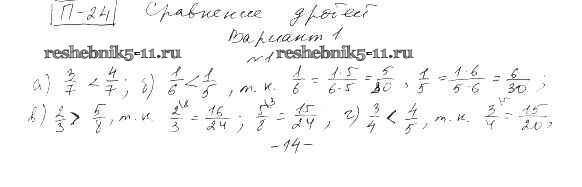 П-24 Сравнение дробей
Вариант 1
reshebnik5-11.ru №1 reshebnik5-11.ru
а) 3/7 < 4/7; б) 1/6 < 1/5, т.к. 1/6 = 1·5/6·5 = 5/30, 1/5 = 1·6/5·6 = 6/30;
в) 2/3 > 5/8, т.к. 2/3 \8 = 16/24; 5/8 \3 = 15/24, г) 3/4 < 4/5, т.к. 3/4 \5 = 15/20,
-14-